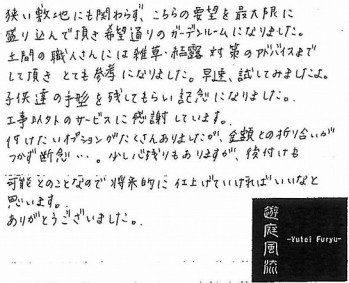 狭い敷地にも関わらず、こちらの要望を最大限に
盛り込んで頂き希望通りのガーデンルームになりました。
土間の職人さんには雑草・結露対策のアドバイスまで
して頂きとても参考になりました。早速、試してみましたよ。
子供達の手形を残してもらい記念になりました。
工事以外のサービスに感謝しています。
付けたいオプションがたくさんありましたが、金額との折り合いが
つかず断念…。少し心残りもありますが、後付けも
可能とのことなので将来的に仕上げていければいいなと
思います。
ありがとうございました。
遊庭風流
-Yutei Furyu-